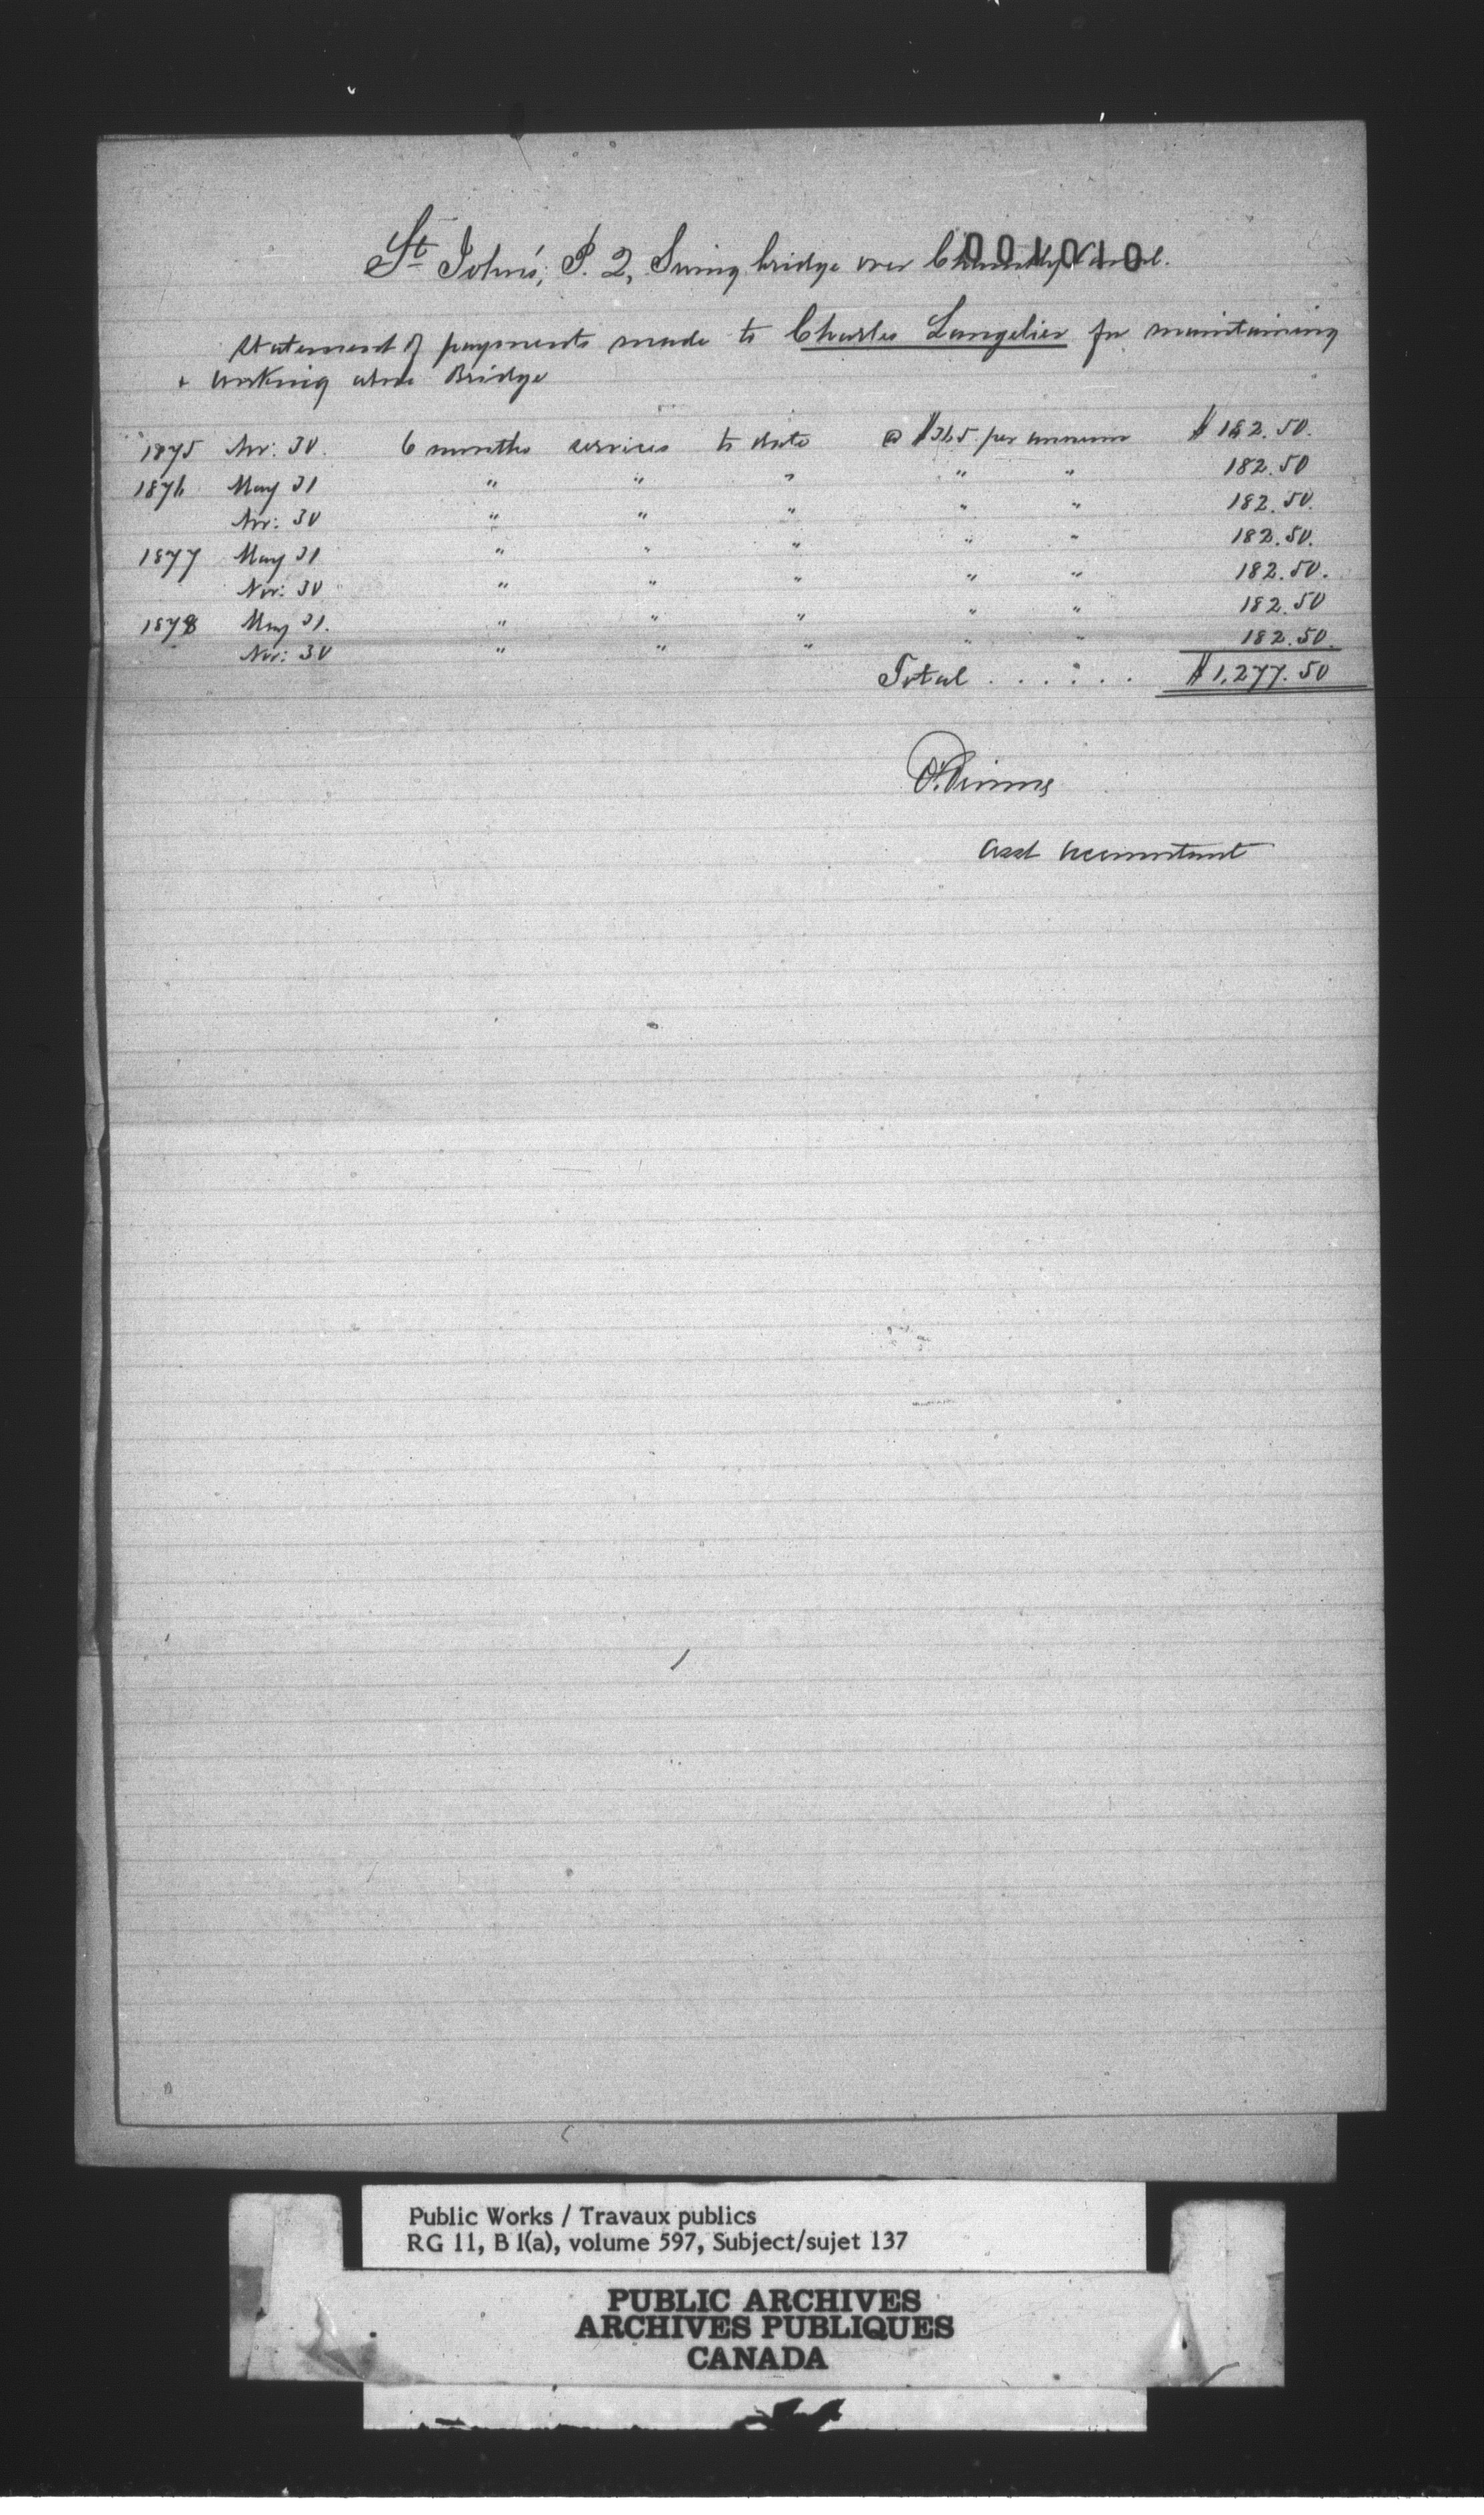 001010
St John's, P. 2, Swing bridge over Chambly Canal.
Statement of payments made to Charles Langelier for maintaining
+ working above Bridge
1875 Nov: 30. 6 months services to date @ $365 per annum $182.50.
1876 May 31 " " " " " 182.50
Nov: 30 " " " " " 182.50.
1877 May 31 " " " " " 182.50.
Nov: 30 " " " " " 182.50.
1878 May 31. " " " " " 182.50
Nov: 30 " " " " " 182.50.
Total . . . : . . $1,277.50
Asst Accountant
Public Works / Travaux publics
RG 11, B 1(a), volume 597, Subject/sujet 137
PUBLIC ARCHIVES
ARCHIVES PUBLIQUES
CANADA